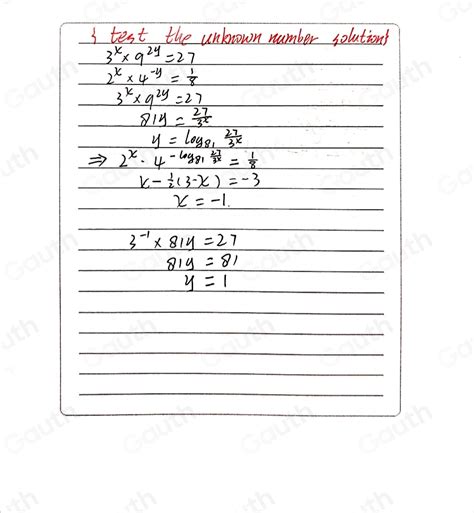 { test the unknown number solutions
3ˣ × 9²ʸ = 27
2ˣ × 4⁻ʸ = 1/8
3ˣ × 9²ʸ = 27
81ʸ = 27/3ˣ
y = log₈₁ 27/3ˣ
⇒ 2ˣ · 4^(-log₈₁ 27/3ˣ) = 1/8
x - 1/2(3-x) = -3
x = -1.
3⁻¹ × 81ʸ = 27
81ʸ = 81
y = 1